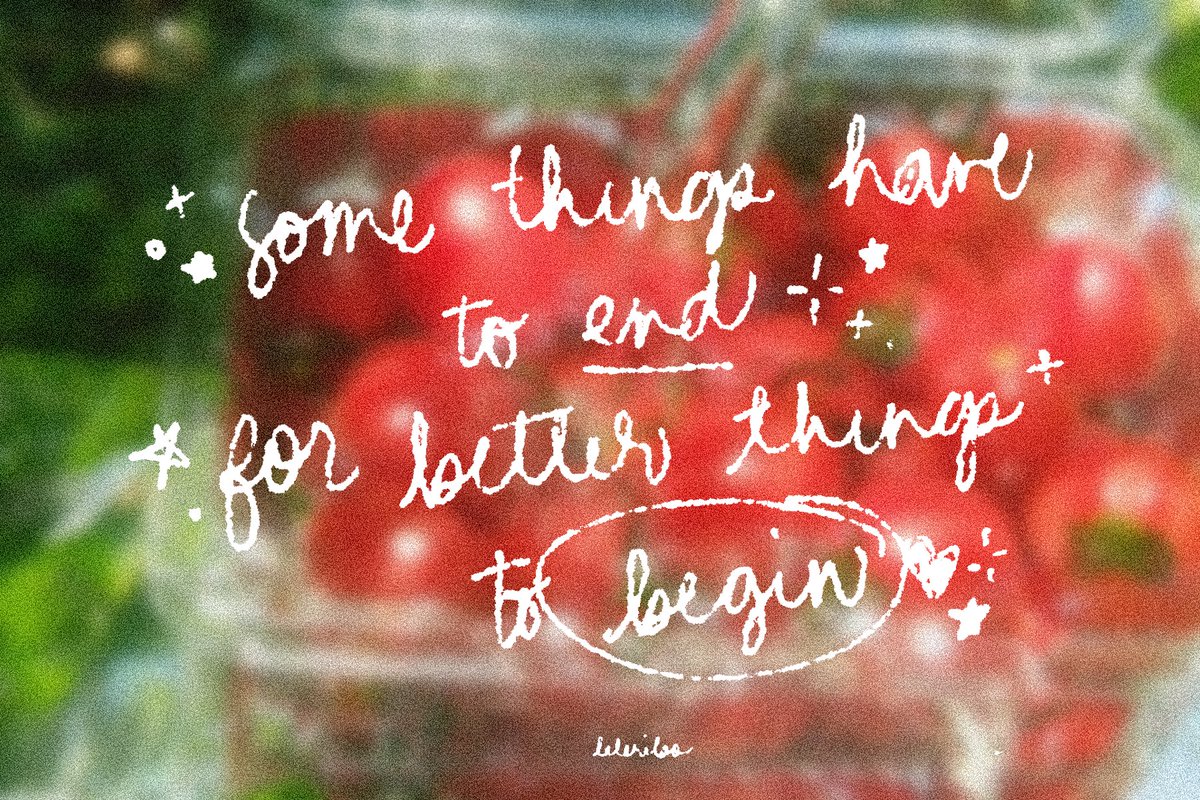 some things have
to end
for better things
to begin